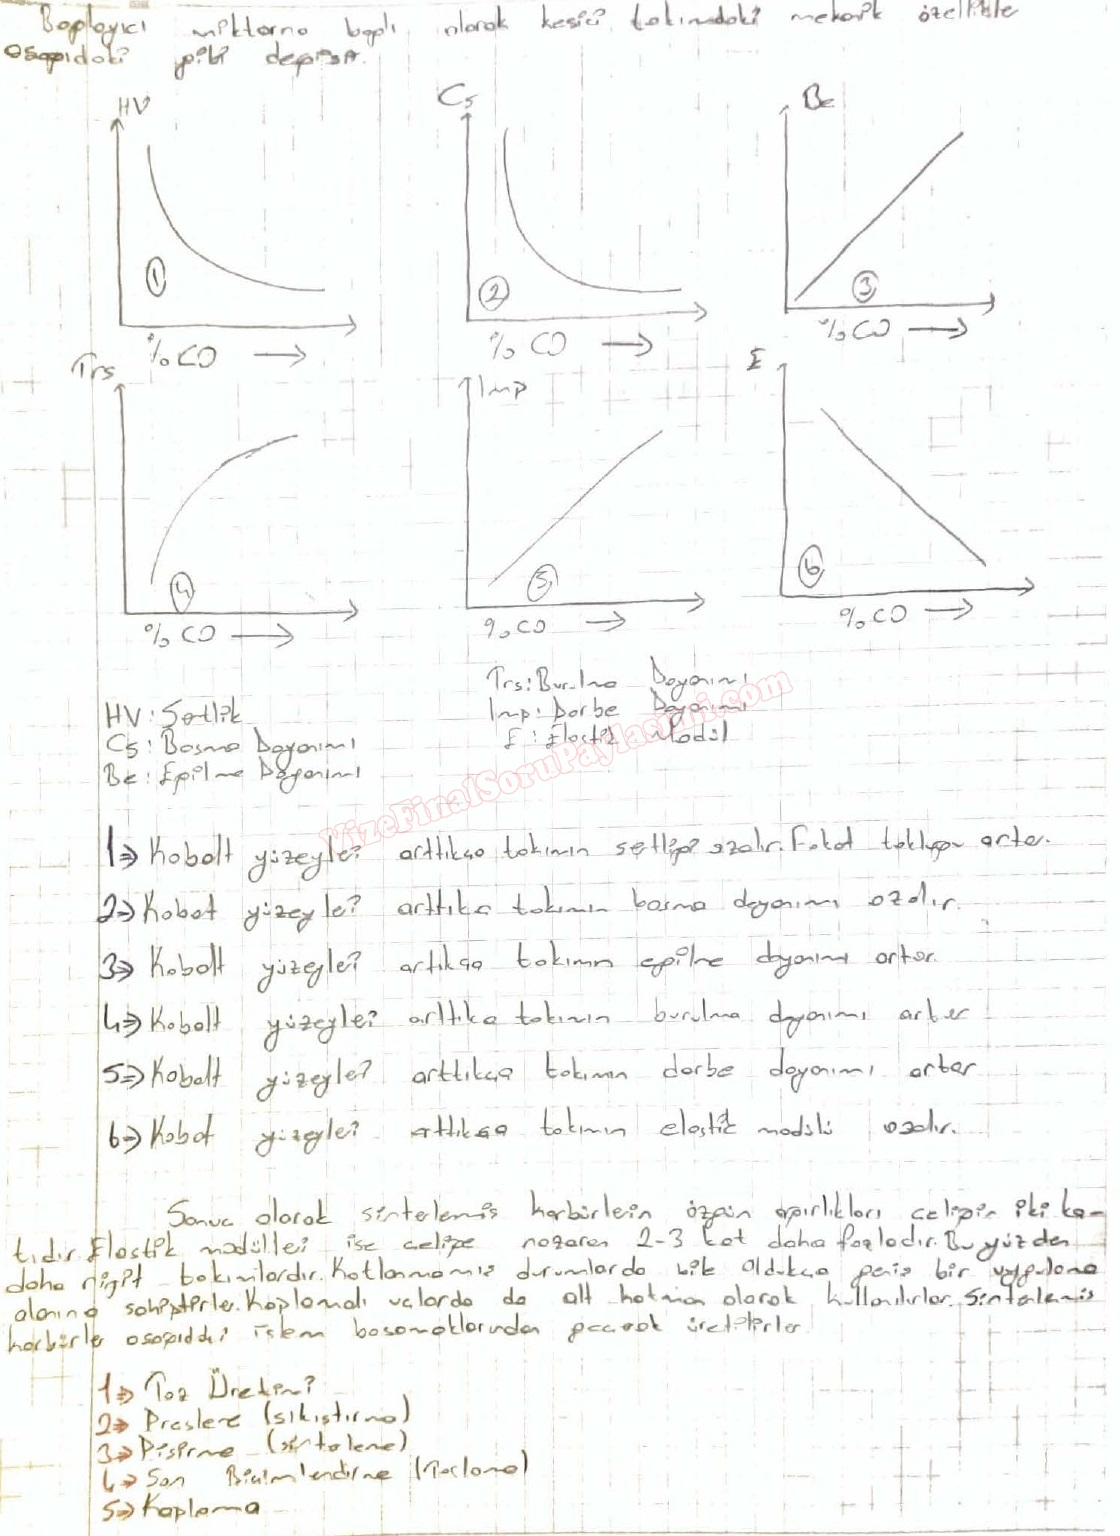 Bağlayıcı miktarına bağlı olarak kesici takımdaki mekanik özellikle
aşağıdaki gibi değişir.
HV
Cs
Be
1
2
3
% CO
% CO
% CO
Trs
Imp
E
4
5
6
% CO
% CO
% CO
HV : Sertlik
Cs : Basma Dayanımı
Be : Eğilme Dayanımı
Trs : Burulma Dayanımı
Imp : Darbe Dayanımı
E : Elastik Modül
VizeFinalSoruPaylasimi.com
1⇒ Kobalt yüzeyleri arttıkça takımın sertliği azalır. Fakat tokluğu artar.
2⇒ Kobat yüzeyleri arttıkça takımın basma dayanımı azalır.
3⇒ Kobalt yüzeyleri artıkça takımın eğilme dayanımı artar.
4⇒ Kobalt yüzeyleri arttıkça takımın burulma dayanımı artar
5⇒ Kobalt yüzeyleri arttıkça takımın darbe dayanımı artar
6⇒ Kobat yüzeyleri arttıkça takımın elastik modülü azalır.
Sonuç olarak sinterlemiş karbürlerin özgün ağırlıkları çeliğin iki ka-
tıdır. Elastik modülleri ise çeliğe nazaran 2-3 kat daha fazladır. Bu yüzden
daha rijit takımlardır. Katlanmamış durumlarda bile oldukça geniş bir uygulama
alanına sahiptirler. Kaplamalı uçlarda da alt katman olarak kullanılırlar. Sinterlemiş
karbürler aşağıdaki işlem basamaklarından geçerek üretilirler.
1⇒ Toz Üretimi
2⇒ Presleme (sıkıştırma)
3⇒ Pişirme (sinterleme)
4⇒ Son Biçimlendirme (Taşlama)
5⇒ Kaplama